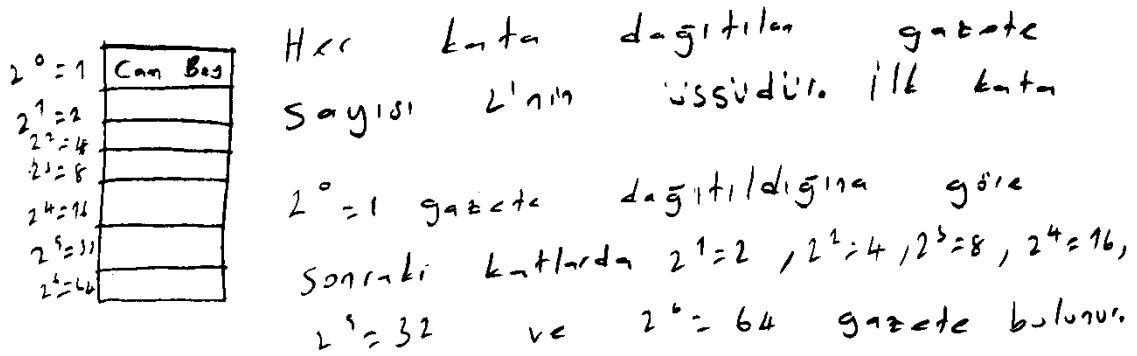 2⁰=1 Can Bey
2¹=2
2²=4
2³=8
2⁴=16
2⁵=32
2⁶=64
Her kata dağıtılan gazete
sayısı 2'nin üssüdür. İlk kata
2⁰=1 gazete dağıtıldığına göre
sonraki katlarda 2¹=2, 2²=4, 2³=8, 2⁴=16,
2⁵=32 ve 2⁶=64 gazete bulunur.